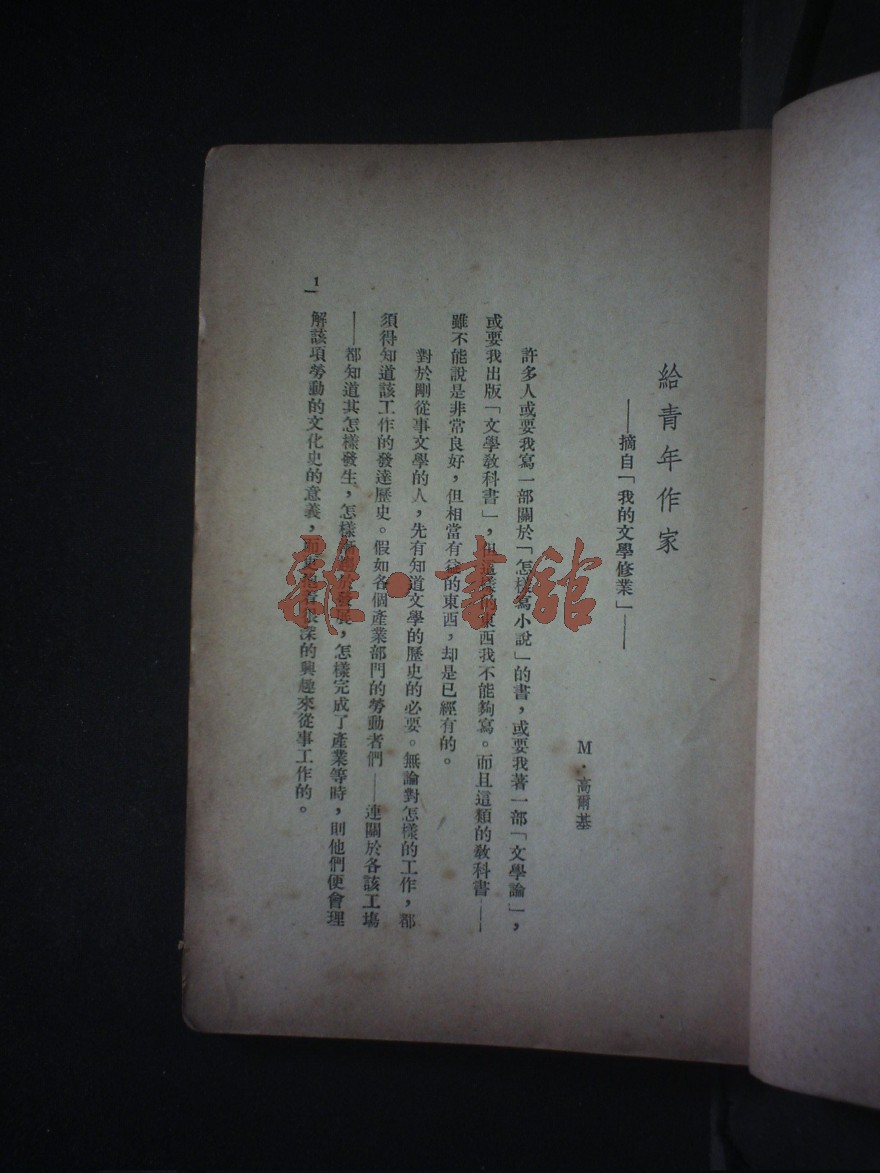 給青年作家
——摘自「我的文學修業」——
M·高爾基
許多人或要我寫一部關於「怎樣寫小說」的書，或要我著一部「文學論」，
或要我出版「文學教科書」，但這樣的東西我不能夠寫。而且這類的教科書——
雖不能說是非常良好，但相當有益的東西，却是已經有的。
對於剛從事文學的人，先有知道文學的歷史的必要。無論對怎樣的工作，都
須得知道該工作的發達歷史。假如各個產業部門的勞動者們——連關於各該工場
——都知道其怎樣發生，怎樣漸發展，怎樣完成了產業等時，則他們便會理
解該項勞動的文化史的意義，深的興趣來從事工作的。
1
雜·書舘